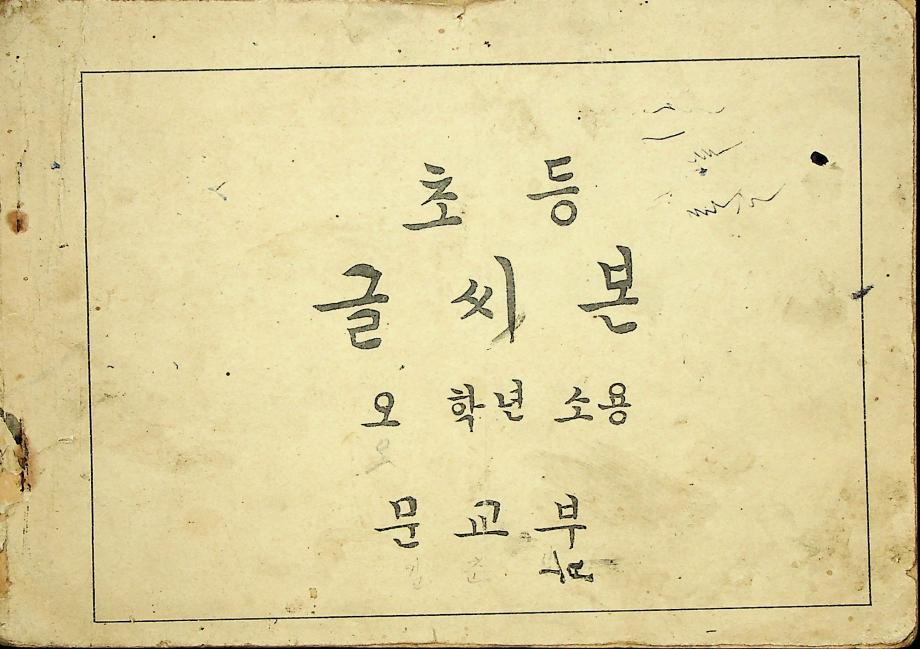 초등
글씨본
오 학년 소용
문교부